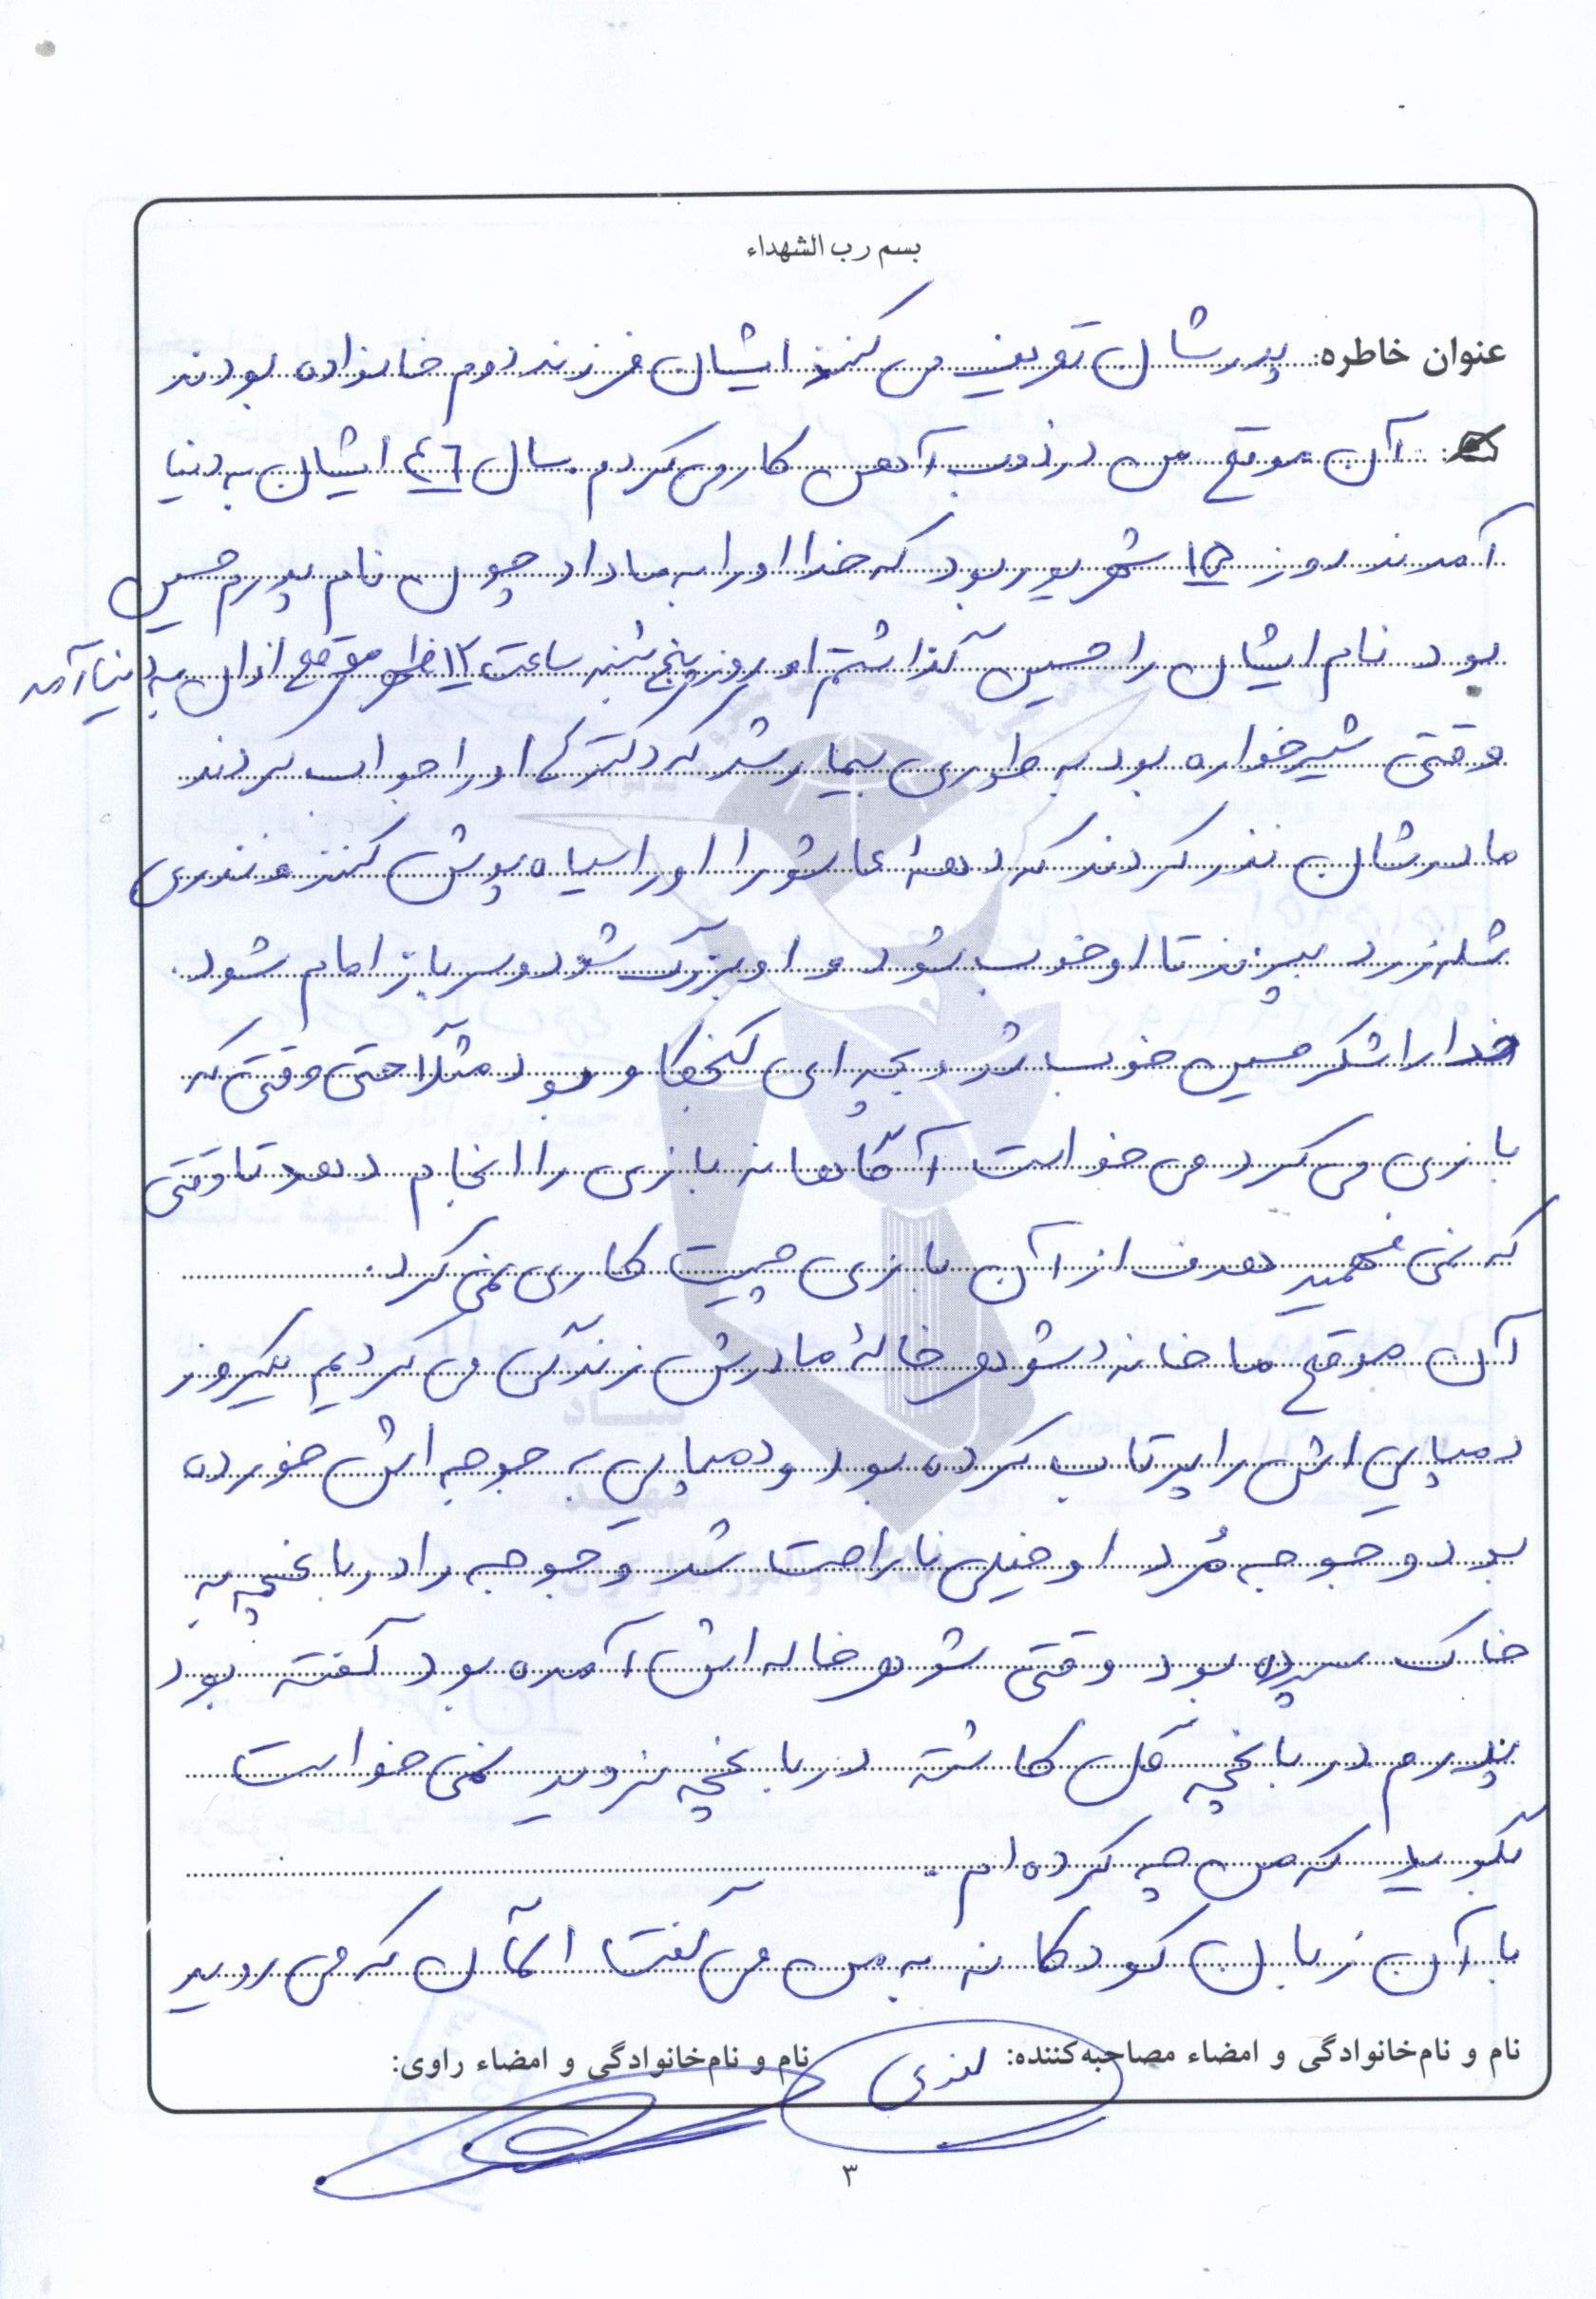 بسم رب الشهداء
عنوان خاطره: پدرشان تعریف می کنند ایشان فرزند دوم خانواده بودند
آن موقع من در ذوب آهن کار می کردم. سال ٤٦ ایشان به دنیا
آمدند روز ۱۵ شهریور بود که خدا او را به ما داد چون نام پدرم حسین
بود نام ایشان را حسین گذاشتم او روز پنج شنبه ساعت ۱۲ ظهر موقع اذان به دنیا آمد
وقتی شیرخواره بود به طوری بیمار شد که دکترها او را جواب کردند
مادرشان نذر کردند که دههٔ عاشورا او را سیاه پوش کنند و نذری
شله زرد بپزند تا او خوب شود و او بزرگ شود و سرباز امام شود.
خدا را شکر حسین خوب شد و بچه ای کنجکاو بود مثلاً حتی وقتی که
بازی می کرد می خواست آگاهانه بازی را انجام دهد تا وقتی
که نمی فهمید هدف از آن بازی چیست کاری نمی کرد.
آن موقع ما خانه شوهر خالهٔ مادرش زندگی می کردیم یکروز
دمپایی اش را پرتاب کرده بود و دمپایی به جوجه اش خورده
بود و جوجه مُرد او خیلی ناراحت شد و جوجه را در باغچه به
خاک سپرده بود وقتی شوهر خاله اش آمده بود گفته بود
پدرم در باغچه گل کاشته در باغچه نروید نمی خواست
بگوید که من چه کرده ام.
با آن زبان کودکانه به من می گفت الآن که می روید
نام و نام‌خانوادگی و امضاء مصاحبه‌کننده: نام و نام‌خانوادگی و امضاء راوی:
۳